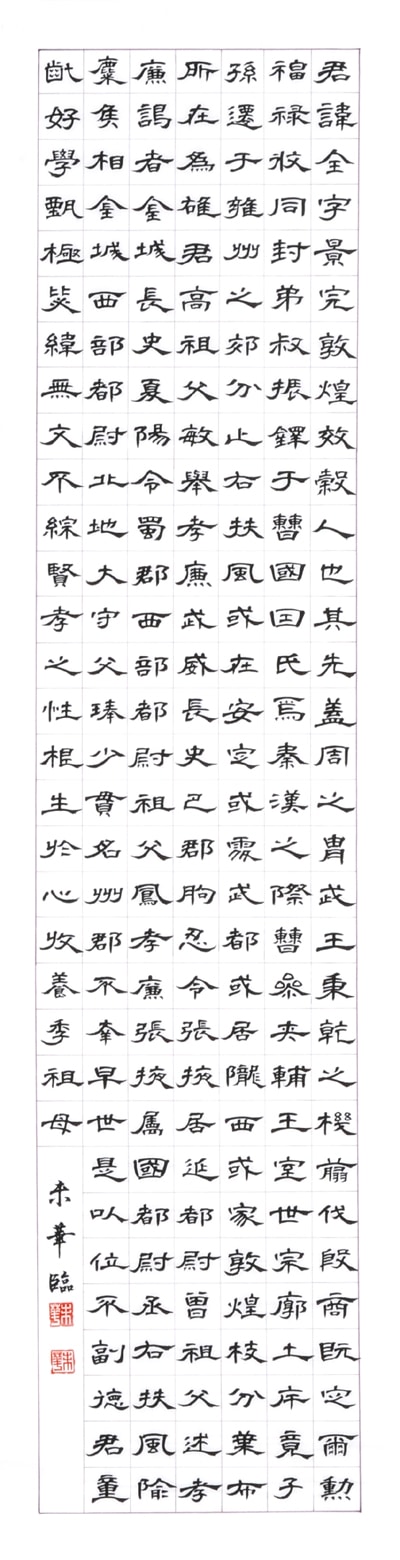 君諱全字景完敦煌效穀人也其先蓋周之胄武王秉乾之機翦伐殷商既定爾勳
福祿攸同封弟叔振鐸于曹國因氏焉秦漢之際曹參夾輔王室世宗廓土斥竟子
孫遷于雍州之郊分止右扶風或在安定或處武都或居隴西或家敦煌枝分葉布
所在為雄君高祖父敏舉孝廉武威長史巴郡朐忍令張掖居延都尉曾祖父述孝
廉謁者金城長史夏陽令蜀郡西部都尉祖父鳳孝廉張掖屬國都尉丞右扶風隃
麋侯相金城西部都尉北地大守父琫少貫名州郡不幸早世是以位不副德君童
齔好學甄極毖緯無文不綜賢孝之性根生於心收養季祖母
朱華臨